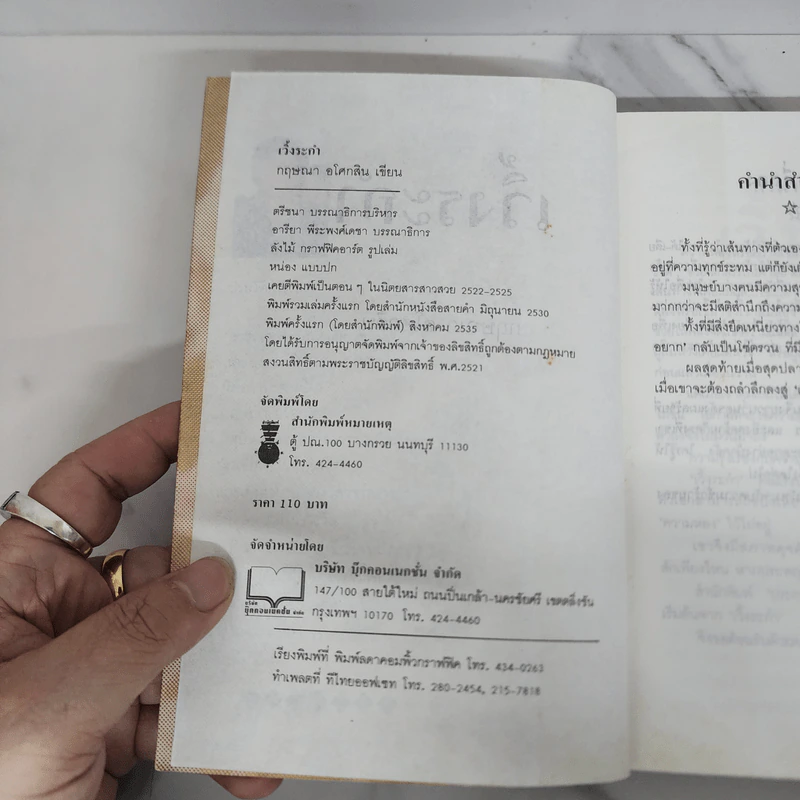 เวิ้งระกำ
กฤษณา อโศกสิน เขียน
ตรีชนา บรรณาธิการบริหาร
อารียา พีระพงศ์เดชา บรรณาธิการ
ลังไม้ กราฟฟิคอาร์ต รูปเล่ม
หน่อง แบบปก
เคยตีพิมพ์เป็นตอน ๆ ในนิตยสารสาวสวย 2522-2525
พิมพ์รวมเล่มครั้งแรก โดยสำนักหนังสือสายคำ มิถุนายน 2530
พิมพ์ครั้งแรก (โดยสำนักพิมพ์) สิงหาคม 2535
โดยได้รับการอนุญาตจัดพิมพ์จากเจ้าของลิขสิทธิ์ถูกต้องตามกฎหมาย
สงวนสิทธิ์ตามพระราชบัญญัติลิขสิทธิ์ พ.ศ.2521
จัดพิมพ์โดย
สำนักพิมพ์หมายเหตุ
ตู้ ปณ.100 บางกรวย นนทบุรี 11130
โทร. 424-4460
ราคา 110 บาท
จัดจำหน่ายโดย
บริษัท บุ๊คคอนเนคชั่น จำกัด
147/100 สายใต้ใหม่ ถนนปิ่นเกล้า-นครชัยศรี เขตตลิ่งชัน
กรุงเทพฯ 10170 โทร. 424-4460
บริษัท
บุ๊คคอนเนคชั่น จำกัด
เรียงพิมพ์ที่ พิมพ์ลดาคอมพิ้วกราฟฟิค โทร. 434-0263
ทำเพลตที่ ทีไทยออฟเซท โทร. 280-2454, 215-7818
คำนำสำ
ทั้งที่รู้ว่าเส้นทางที่ตัวเอง
อยู่ที่ความทุกข์ระทม แต่ก็ยัง
มนุษย์บางคนมีความสุ
มากกว่าจะมีสติสำนึกถึงความ
ทั้งที่มีสิ่งยึดเหนี่ยวทาง
อยาก' กลับเป็นโซ่ตรวน ที่
ผลสุดท้ายเมื่อสุดปลา
เมื่อเขาจะต้องถลำลึกลงสู่